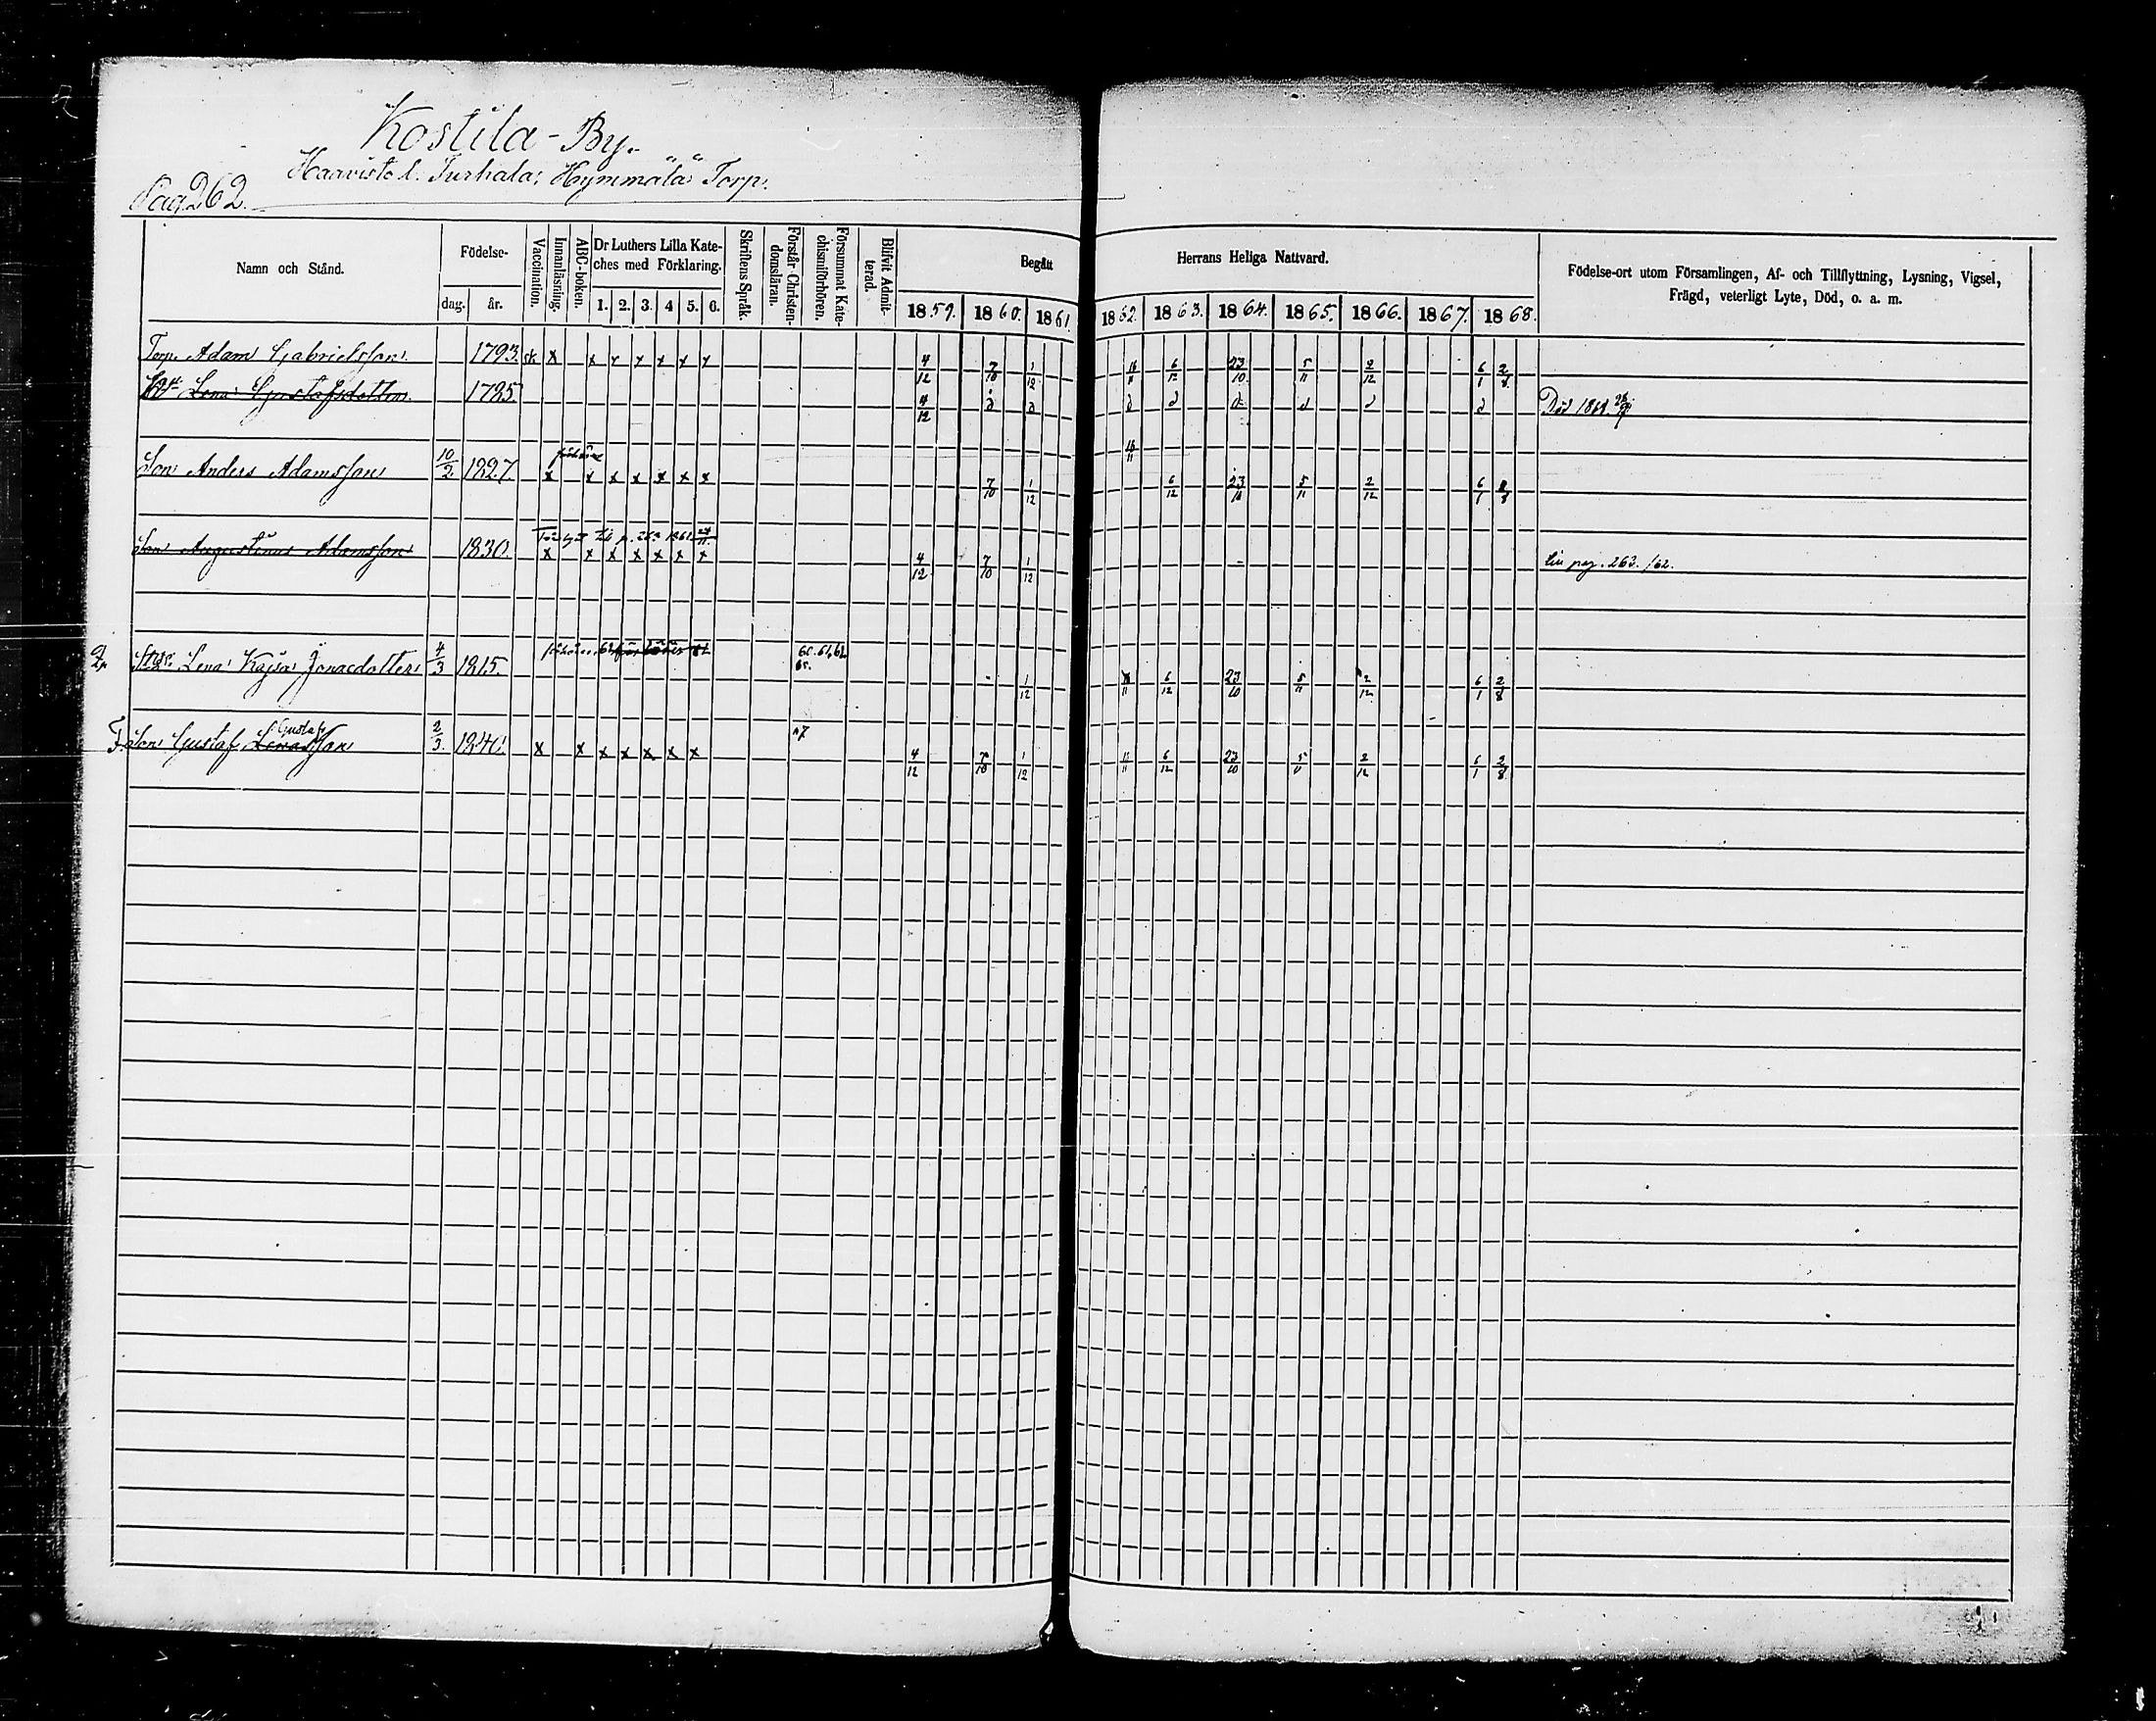 Kostila - By.
Haavisto l. Turhala, Hymmälä Torp.
Pag 262.
Namn och Stånd.
Födelse-
dag. år.
Vaccination.
Innanläsning.
ABC-boken.
Dr Luthers Lilla Kate-
ches med Förklaring.
1. 2. 3. 4 5. 6.
Skriftens Språk.
Förstår Christen-
domsläran.
Försummat Kate-
chismiförhören.
Blifvit Admit-
terad.
Begått Herrans Heliga Nattvard.
1859. 1860. 1861. 1862. 1863. 1864. 1865. 1866. 1867. 1868.
Födelse-ort utom Församlingen, Af- och Tillflyttning, Lysning, Vigsel,
Frägd, veterligt Lyte, Död, o. a. m.
Torp. Adam Gabrielsson 1793. x x x x x x x 4/12 7/10 1/12 6/12 23/10 5/11 2/12 6/1 2/8
Lena Gustafsdotter 1785 4/12 Död
Son Anders Adamsson 10/2 1827. x x x x x x x 7/10 1/12 6/12 23/10 5/11 2/12 6/1 2/8
Son Augustinus Adamsson 1830. p. 263 1861 x x x x x x x 4/12 7/10 1/12 pag. 263. /62.
Lena Kajsa Jonasdotter 4/3 1815. 60. 61, 62 65. 1/12 6/12 23/10 5/11 2/12 6/1 2/8
Son Gustaf Lenasson Gustafs 2/3. 1840. x x x x x x x 4/12 7/10 1/12 6/12 23/10 2/12 6/1 2/8